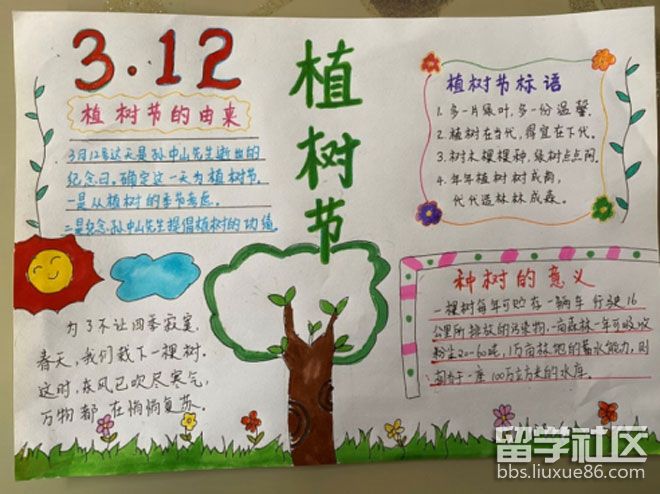 3.12
植树节
植树节的由来
3月12号这天是孙中山先生逝世的
纪念日。确定这一天为植树节。
一是从植树的季节考虑。
二是纪念孙中山先生提倡植树的功绩。
为了不让四季寂寞.
春天，我们栽下一棵树.
这时，东风已吹尽寒气，
万物都在悄悄复苏。
植树节标语
1. 多一片绿叶，多一份温馨。
2. 植树在当代，得宜在下代。
3. 树木棵棵种，绿树点点阿。
4. 年年植树树成荫，
代代造林林成森。
种树的意义
一棵树每年可贮存一辆车行驶16
公里所排放的污染物。一亩森林一年可吸收
粉尘20-60吨，1万亩林地的蓄水能力，则
相当于一座100万立方米的水库。
留学社区
bbs.liuxue86.com